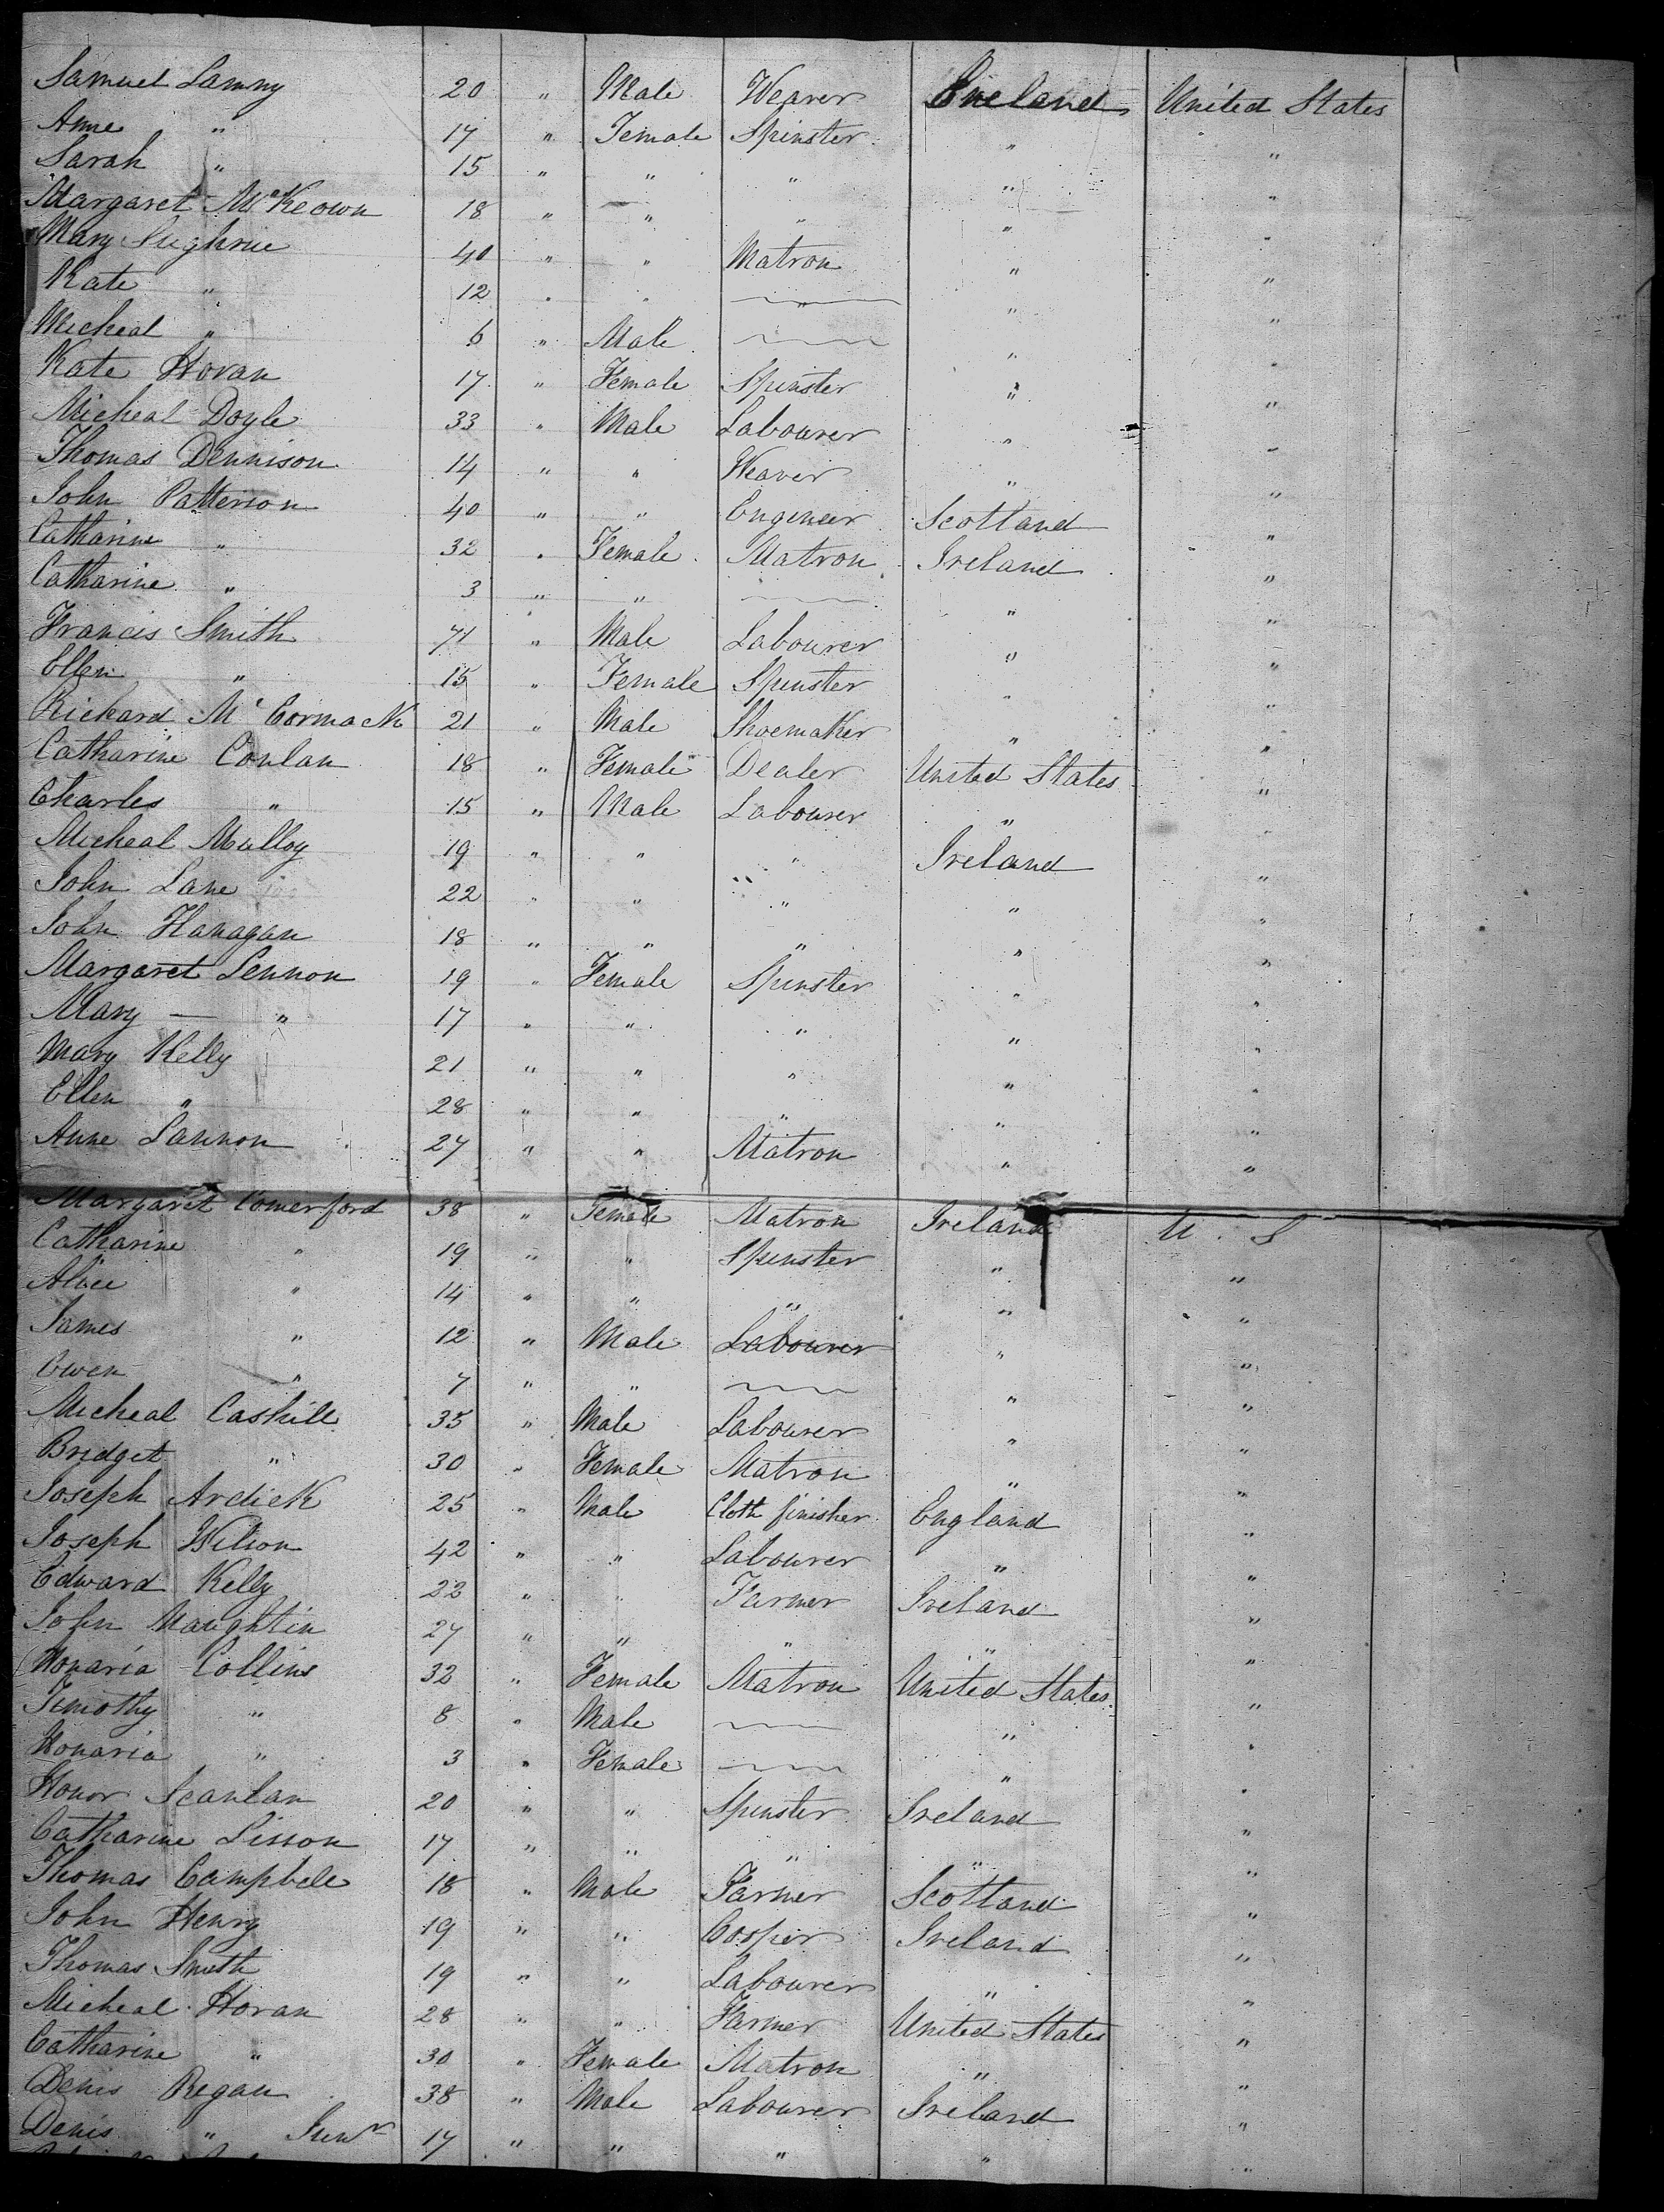 Samuel Lamny 20 " Male Weaver Ireland United States
Anne " 17 " Female Spinster " "
Sarah " 15 " " " " "
Margaret McKeown 18 " " " " "
Mary 40 " " Matron " "
Kate " 12 " " " " "
Micheal " 6 " Male " "
Kate Horan 17 " Female Spinster " "
Micheal Doyle 33 " Male Labourer " "
Thomas Dennison 14 " " Weaver " "
John Patterson 40 " " Engineer Scotland "
Catharine " 32 " Female Matron Ireland "
Catharine " 3 " " " "
Francis Smith 71 " Male Labourer " "
Ellen " 15 " Female Spinster " "
Richard Mc Cormack 21 " Male Shoemaker " "
Catharine Conlan 18 " Female Dealer United States "
Charles " 15 " Male Labourer " "
Micheal Mulloy 19 " " " Ireland "
John Lane 22 " " " " "
John Flanagan 18 " " " " "
Margaret Lennon 19 " Female Spinster " "
Mary — " 17 " " " " "
Mary Kelly 21 " " " " "
Ellen " 28 " " " " "
Anne Lannon 27 " " Matron " "
Margaret Comerford 38 " Female Matron Ireland U. S
Catharine " 19 " " Spinster " "
Alice " 14 " " " " "
James " 12 " Male Labourer " "
Owen " 7 " " " "
Micheal Caskill 35 " Male Labourer " "
Bridget " 30 " Female Matron " "
Joseph Ardick 25 " Male Cloth finisher England "
Joseph Wilson 42 " " Labourer " "
Edward Kelly 22 " " Farmer Ireland "
John Naughtin 27 " " " " "
Honaria Collins 32 " Female Matron United States "
Timothy " 8 " Male " "
Honaria " 3 " Female " "
Honor Scanlan 20 " " Spinster Ireland "
Catharine Lisson 17 " " " " "
Thomas Campbell 18 " Male Farmer Scotland "
John Henry 19 " " Cooper Ireland "
Thomas Smith 19 " " Labourer " "
Micheal Horan 28 " " Farmer United States "
Catharine " 30 " Female Matron " "
Denis Regan 38 " Male Labourer Ireland "
Denis " Junr 17 " " " " "